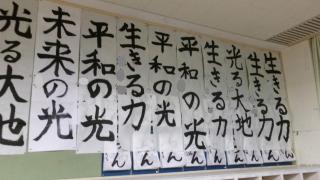 光る大地
未来の光
平和の光
生きる力
平和の光
平和の光
生きる力
光る大地
生きる力
生きる力